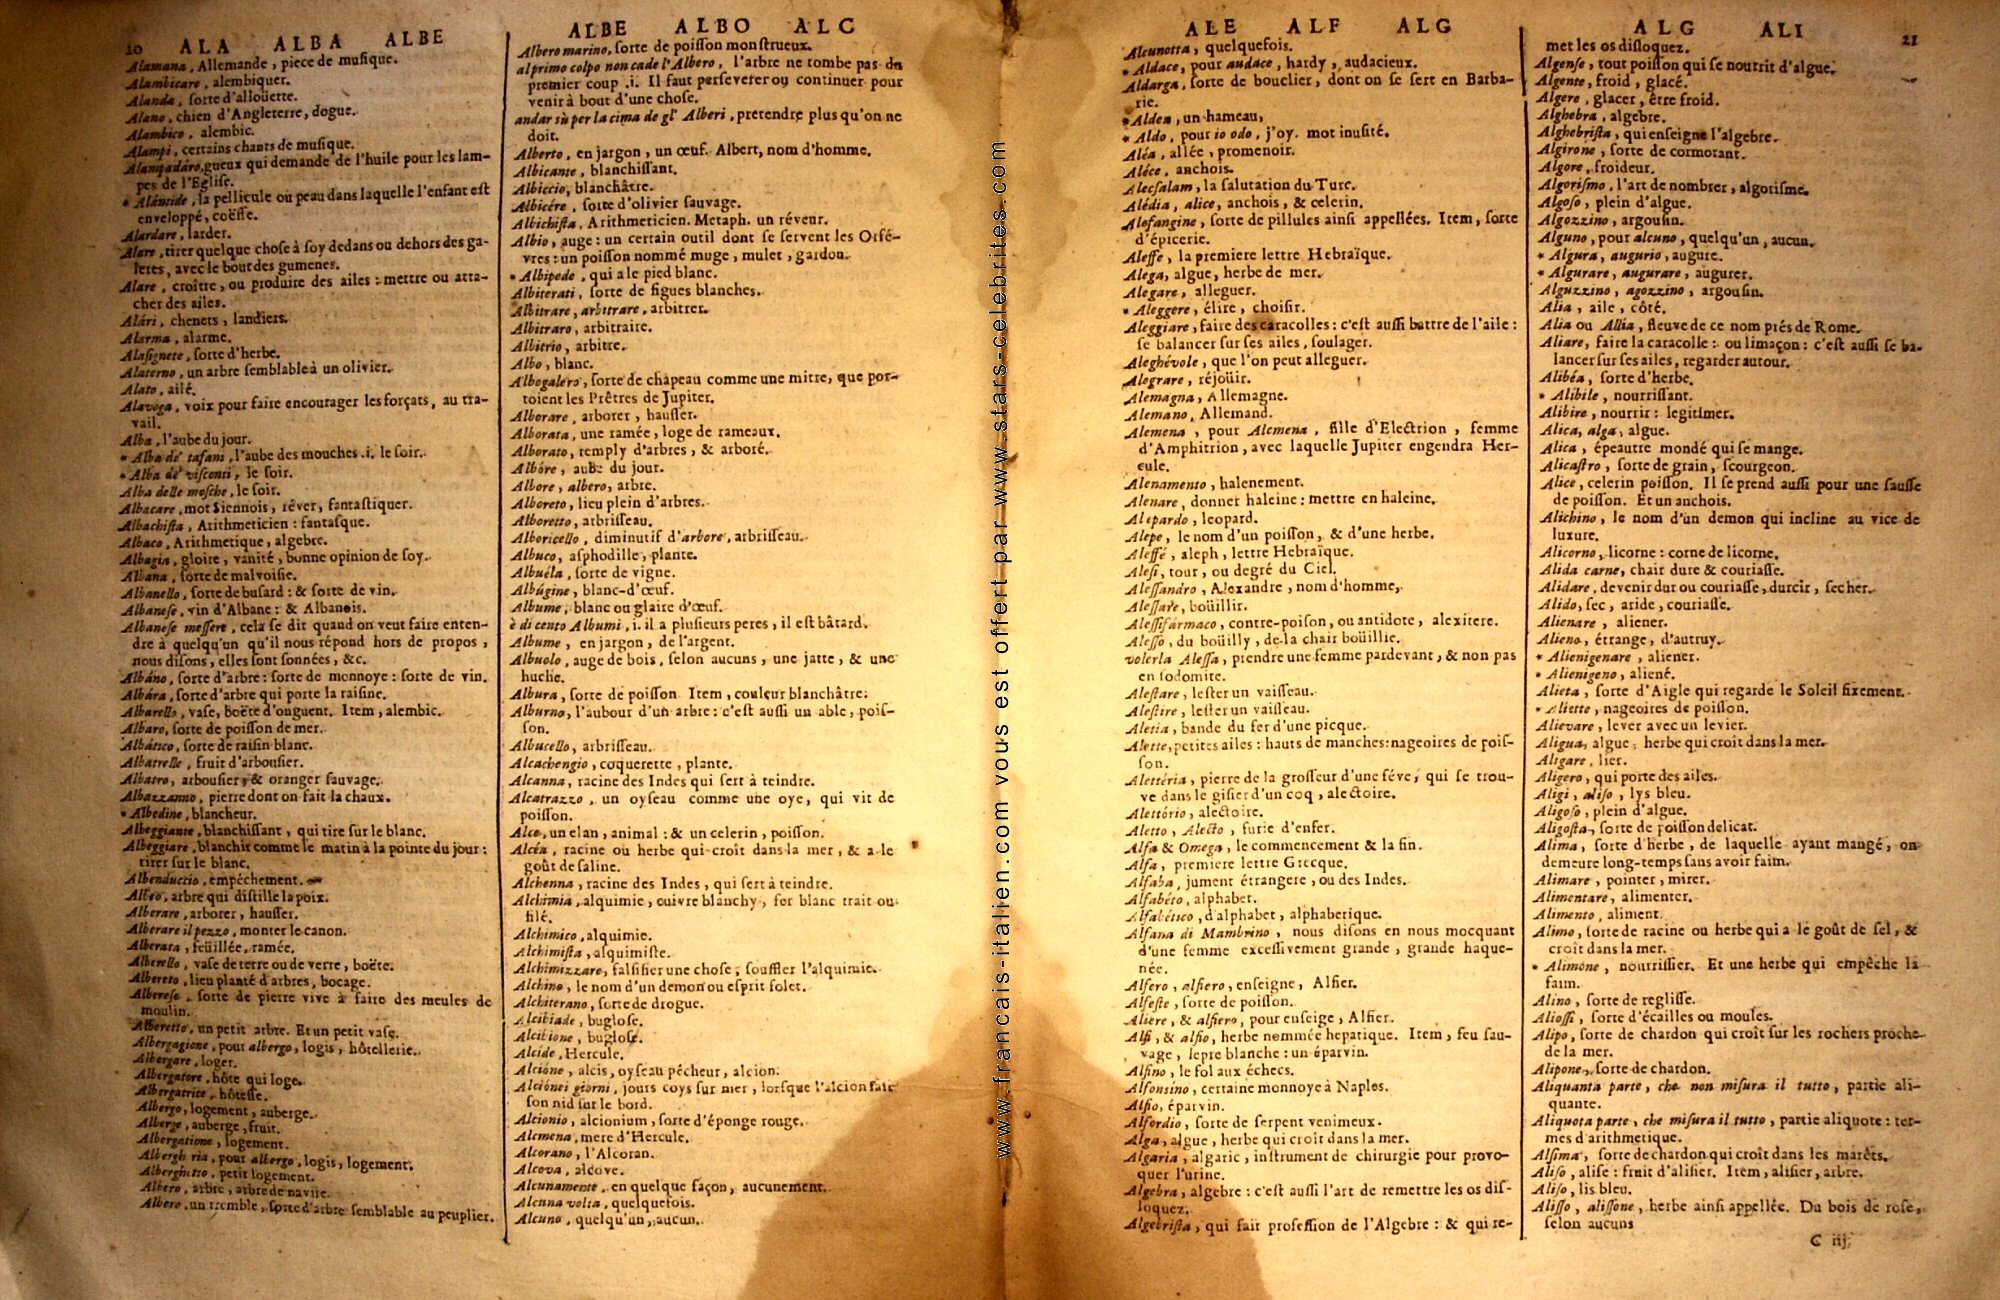 20 ALA ALBA ALBE
Alamana, Allemande, piece de musique.
Alambicare, alembiquer.
Alanda, sorte d'alloüette.
Alano, chien d'Angleterre, dogue.
Alambico, alembic.
Alampi, certains chants de musique.
Alampadáro, gueux qui demande de l'huile pour les lam-
pes de l'Eglise.
* Alántide, la pellicule ou peau dans laquelle l'enfant est
enveloppé, coëffe.
Alardare, larder.
Alare, tirer quelque chose à soy dedans ou dehors des ga-
leres, avec le bout des gumenes.
Alare, croître, ou produire des ailes : mettre ou atta-
cher des ailes.
Alári, chenets, landiers.
Alarma, alarme.
Alasignete, sorte d'herbe.
Alaterno, un arbre semblable à un olivier.
Alato, ailé.
Alavoga, voix pour faire encourager les forçats, au tra-
vail.
Alba, l'aube du jour.
* Alba de' tafani, l'aube des mouches .i. le soir.
* Alba de' visconti, le soir.
Alba delle mosche, le soir.
Albacare, mot Siennois, rêver, fantastiquer.
Albachista, Arithmeticien : fantasque.
Albaco, Arithmetique, algebre.
Albagia, gloire, vanité, bonne opinion de soy.
Albana, sorte de malvoisie.
Albanello, sorte de busard : & sorte de vin.
Albanese, vin d'Albane : & Albanois.
Albanese messere, cela se dit quand on veut faire enten-
dre à quelqu'un qu'il nous répond hors de propos,
nous disons, elles sont sonnées, &c.
Albáno, sorte d'arbre : sorte de monnoye : sorte de vin.
Albára, sorte d'arbre qui porte la raisine.
Albarello, vase, boëte d'onguent. Item, alembic.
Albaro, sorte de poisson de mer.
Albático, sorte de raisin blanc.
Albatrelle, fruit d'arbousier.
Albatro, arbousier, & oranger sauvage.
Albazzanno, pierre dont on fait la chaux.
* Albedine, blancheur.
Albeggiante, blanchissant, qui tire sur le blanc.
Albeggiare, blanchir comme le matin à la pointe du jour :
tirer sur le blanc.
Albenduccio, empêchement.
Albeo, arbre qui distille la poix.
Alberare, arborer, hausser.
Alberare il pezzo, monter le canon.
Alberata, feüillée, ramée.
Alberello, vase de terre ou de verre, boëte.
Albereto, lieu planté d'arbres, bocage.
Alberese, sorte de pierre vive à faire des meules de
moulin.
Alberetto, un petit arbre. Et un petit vase.
Albergagione, pour albergo, logis, hôtellerie.
Albergare, loger.
Albergatore, hôte qui loge.
Albergatrice, hôtesse.
Albergo, logement, auberge.
Alberge, auberge, fruit.
Albergatione, logement.
Albergh ria, pour albergo, logis, logement.
Alberghetto, petit logement.
Albero, arbre, arbre de navire.
Albero, un tremble, sorte d'arbre semblable au peuplier.
ALBE ALBO ALC
Albero marino, sorte de poisson monstrueux.
al primo colpo non cade l'Albero, l'arbre ne tombe pas du
premier coup .i. Il faut perseverer ou continuer pour
venir à bout d'une chose.
andar sù per la cima de gl' Alberi, pretendre plus qu'on ne
doit.
Alberto, en jargon, un œuf. Albert, nom d'homme.
Albicante, blanchissant.
Albiccio, blanchâtre.
Albicére, sorte d'olivier sauvage.
Albichista, Arithmeticien. Metaph. un rêveur.
Albio, auge : un certain outil dont se servent les Orfé-
vres : un poisson nommé muge, mulet, gardon.
* Albipede, qui a le pied blanc.
Albiterati, sorte de figues blanches.
Albitrare, arbitrare, arbitrer.
Albitraro, arbitraire.
Albitrio, arbitre.
Albo, blanc.
Albogalero, sorte de chapeau comme une mitre, que por-
toient les Prêtres de Jupiter.
Alborare, arborer, hausser.
Alborata, une ramée, loge de rameaux.
Alborato, remply d'arbres, & arboré.
Albóre, aube du jour.
Albore, albero, arbre.
Alboreto, lieu plein d'arbres.
Alboretto, arbrisseau.
Alboricello, diminutif d'arbore, arbrisseau.
Albuco, asphodille, plante.
Albuéla, sorte de vigne.
Albúgine, blanc-d'œuf.
Albume, blanc ou glaire d'œuf.
è di cento Albumi, i. il a plusieurs peres, il est bâtard.
Albume, en jargon, de l'argent.
Albuolo, auge de bois, selon aucuns, une jatte, & une
huche.
Albura, sorte de poisson Item, couleur blanchâtre.
Alburno, l'aubour d'un arbre : c'est aussi un able, pois-
son.
Albucello, arbrisseau.
Alcachengio, coquerette, plante.
Alcanna, racine des Indes qui sert à teindre.
Alcatrazzo, un oyseau comme une oye, qui vit de
poisson.
Alce, un elan, animal : & un celerin, poisson.
Alcéa, racine ou herbe qui croît dans la mer, & a le
goût de saline.
Alchenna, racine des Indes, qui sert à teindre.
Alchimia, alquimie, cuivre blanchy, fer blanc trait ou
filé.
Alchimico, alquimie.
Alchimista, alquimiste.
Alchimizzare, falsifier une chose, souffler l'alquimie.
Alchino, le nom d'un demon ou esprit folet.
Alchiterano, sorte de drogue.
Alcibiade, buglose.
Alcibione, buglose.
Alcide, Hercule.
Alcióne, alcis, oyseau pêcheur, alcion.
Alciónei giorni, jours coys sur mer, lorsque l'alcion fait
son nid sur le bord.
Alcionio, alcionium, sorte d'éponge rouge.
Alcmena, mere d'Hercule.
Alcorano, l'Alcoran.
Alcova, alcove.
Alcunamente, en quelque façon, aucunement.
Alcuna volta, quelquefois.
Alcuno, quelqu'un, aucun.
www.francais-italien.com vous est offert par www.stars-celebrites.com
ALE ALF ALG
Alcunotta, quelquefois.
* Aldace, pour audace, hardy, audacieux.
Aldarga, sorte de bouclier, dont on se sert en Barba-
rie.
* Aldea, un hameau,
* Aldo, pour io odo, j'oy. mot inusité.
Aléa, allée, promenoir.
Aléce, anchois.
Alecsalam, la salutation du Turc.
Alédia, alice, anchois, & celerin.
Alefangine, sorte de pillules ainsi appellées. Item, sorte
d'épicerie.
Aleffe, la premiere lettre Hebraïque.
Alega, algue, herbe de mer.
Alegare, alleguer.
* Aleggere, élire, choisir.
Aleggiare, faire des caracolles : c'est aussi battre de l'aile :
se balancer sur ses ailes, soulager.
Aleghévole, que l'on peut alleguer.
Alegrare, réjoüir.
Alemagna, Allemagne.
Alemano, Allemand.
Alemena, pour Alcmena, fille d'Electrion, femme
d'Amphitrion, avec laquelle Jupiter engendra Her-
cule.
Alenamento, halenement.
Alenare, donner haleine : mettre en haleine.
Alepardo, leopard.
Alepe, le nom d'un poisson, & d'une herbe.
Aleffé, aleph, lettre Hebraïque.
Alesi, tour, ou degré du Ciel.
Alessandro, Alexandre, nom d'homme,
Alessare, boüillir.
Alessifármaco, contre-poison, ou antidote, alexitere.
Alesso, du boüilly, de la chair boüillie.
volerla Alessa, prendre une femme pardevant, & non pas
en sodomite.
Alestare, lester un vaisseau.
Alestire, lester un vaisseau.
Aletia, bande du fer d'une picque.
Alette, petites ailes : hauts de manches : nageoires de pois-
son.
Alettéria, pierre de la grosseur d'une féve, qui se trou-
ve dans le gisier d'un coq, alectoire.
Alettório, alectoire.
Aletto, Alecto, furie d'enfer.
Alfa & Omega, le commencement & la fin.
Alfa, premiere lettre Grecque.
Alfaba, jument étrangere, ou des Indes.
Alfabéto, alphabet.
Alfabético, d'alphabet, alphabetique.
Alfana di Mambrino, nous disons en nous mocquant
d'une femme excessivement grande, grande haque-
née.
Alfero, alfiero, enseigne, Alfier.
Alfeste, sorte de poisson.
Aliere, & alfiero, pour enseigne, Alfier.
Alfi, & alfio, herbe nommée hepatique. Item, feu sau-
vage, lepre blanche : un éparvin.
Alfino, le fol aux échecs.
Alfonsino, certaine monnoye à Naples.
Alfio, éparvin.
Alfordio, sorte de serpent venimeux.
Alga, algue, herbe qui croit dans la mer.
Algaria, algaric, instrument de chirurgie pour provo-
quer l'urine.
Algebra, algebre : c'est aussi l'art de remettre les os dis-
loquez.
Algebrista, qui fait profession de l'Algebre : & qui re-
ALG ALI 21
met les os disloquez.
Algense, tout poisson qui se nourrit d'algue.
Algente, froid, glacé.
Algere, glacer, être froid.
Alghebra, algebre.
Alghebrista, qui enseigne l'algebre.
Algirone, sorte de cormorant.
Algore, froideur.
Algorismo, l'art de nombrer, algorisme.
Algoso, plein d'algue.
Algozzino, argousin.
Alguno, pour alcuno, quelqu'un, aucun.
* Algura, augurio, augure.
* Algurare, augurare, augurer.
Alguzzino, agozzino, argousin.
Alia, aile, côté.
Alia ou Allia, fleuve de ce nom prés de Rome.
Aliare, faire la caracolle : ou limaçon : c'est aussi se ba-
lancer sur ses ailes, regarder autour.
Alibéa, sorte d'herbe.
* Alibile, nourrissant.
Alibire, nourrir : legitimer.
Alica, alga, algue.
Alica, épeautre mondé qui se mange.
Alicastro, sorte de grain, scourgeon.
Alice, celerin poisson. Il se prend aussi pour une sausse
de poisson. Et un anchois.
Alichino, le nom d'un demon qui incline au vice de
luxure.
Alicorno, licorne : corne de licorne.
Alida carne, chair dure & couriasse.
Alidare, devenir dur ou couriasse, durcir, secher.
Alido, sec, aride, couriasse.
Alienare, aliener.
Alieno, étrange, d'autruy.
* Alienigenare, aliener.
* Alienigeno, aliené.
Alieta, sorte d'Aigle qui regarde le Soleil fixement.
* Aliette, nageoires de poisson.
Alievare, lever avec un levier.
Aligua, algue, herbe qui croit dans la mer.
Aligare, lier.
Aligero, qui porte des ailes.
Aligi, aliso, lys bleu.
Aligoso, plein d'algue.
Aligosta, sorte de poisson delicat.
Alima, sorte d'herbe, de laquelle ayant mangé, on
demeure long-temps sans avoir faim.
Alimare, pointer, mirer.
Alimentare, alimenter.
Alimento, aliment.
Alimo, sorte de racine ou herbe qui a le goût de sel, &
croît dans la mer.
* Alimóne, nourrissier. Et une herbe qui empêche la
faim.
Alino, sorte de reglisse.
Aliossi, sorte d'écailles ou moules.
Alipo, sorte de chardon qui croît sur les rochers proche
de la mer.
Alipone, sorte de chardon.
Aliquanta parte, che non misura il tutto, partie ali-
quante.
Aliquota parte, che misura il tutto, partie aliquote : ter-
mes d'arithmetique.
Alisma, sorte de chardon qui croît dans les marêts.
Aliso, alise : fruit d'alisier. Item, alisier, arbre.
Aliso, lis bleu.
Alisso, alissone, herbe ainsi appellée. Du bois de rose,
selon aucuns
C iij.